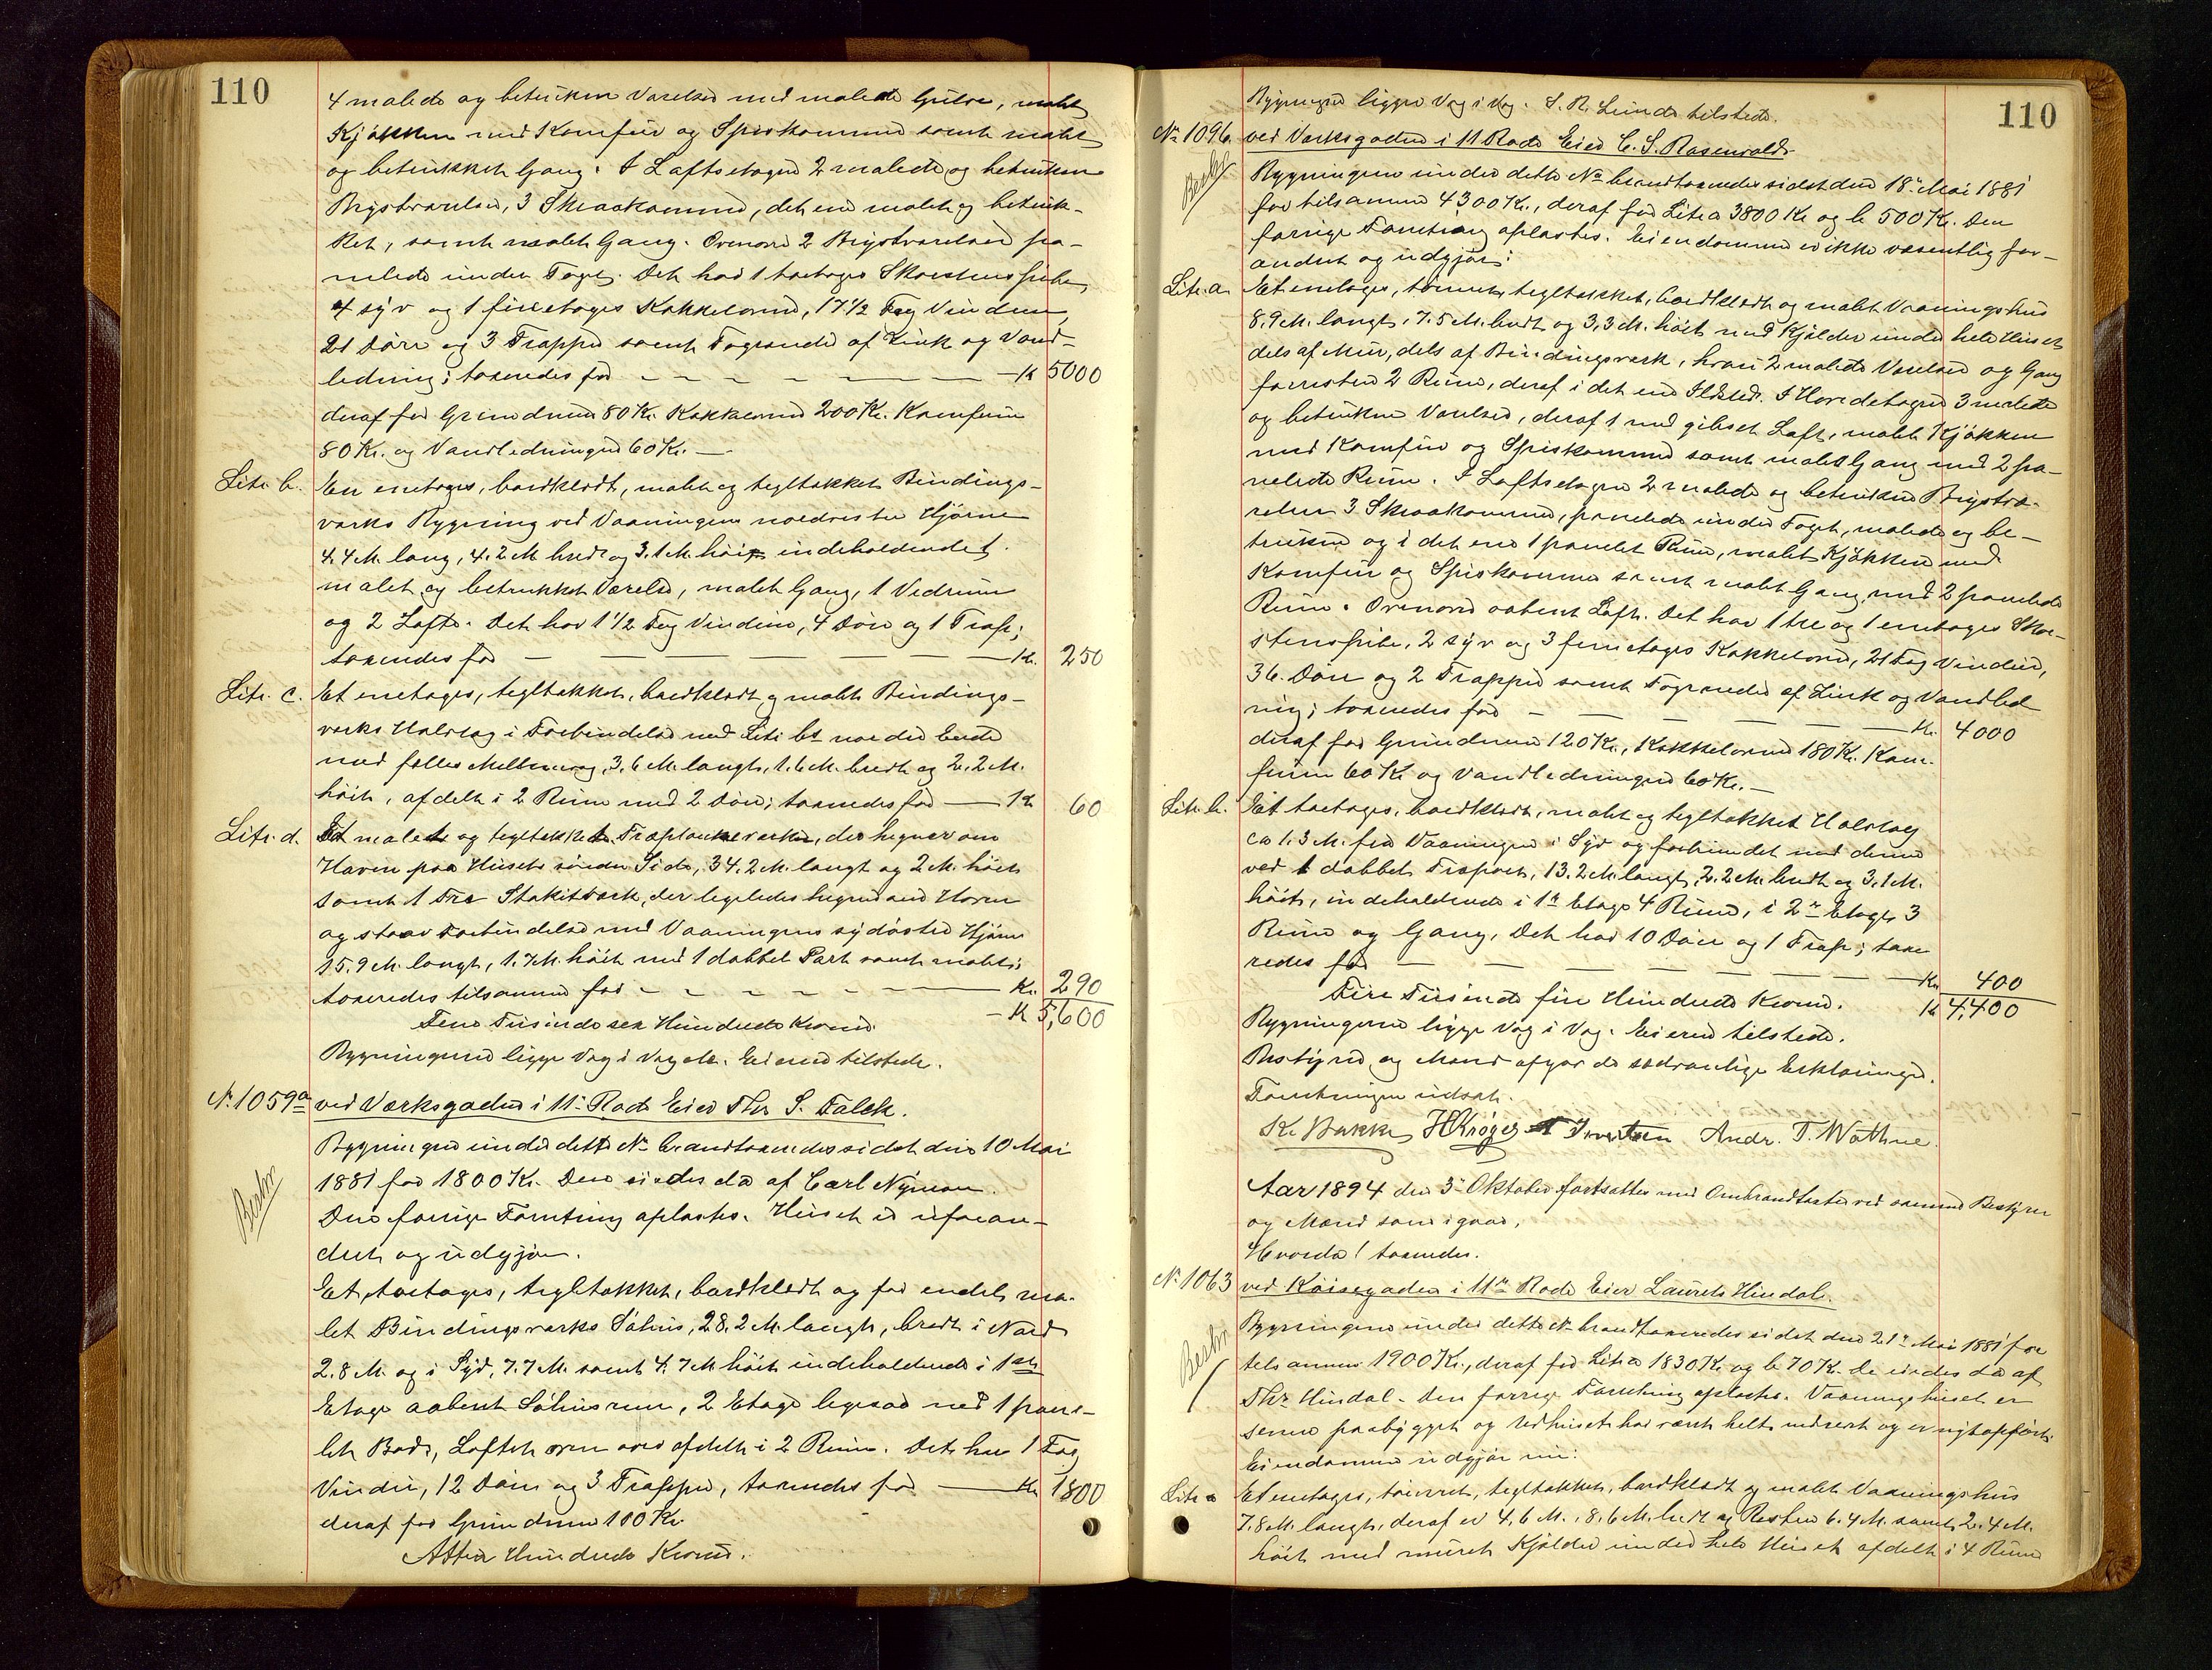 110
4 malede og betrukne Værelser med malede Gulve, malet
Kjøkken med Komfur og Spiskammer samt malet
og betrukket Gang. I Loftsetagen 2 malede og betrukne
Brystværelser, 3 Skraakammer, det ene malet og betruk-
ket, samt malet Gang. Ovenover 2 Brystværelser pa-
nelede under Taget. Det har 1 toetages Skorstenspibe,
4 syv og 1 fireetages Kakkelovne, 17 1/2 Fag Vinduer,
21 Døre og 3 Trapper samt Tagrender af Zink og Vand-
ledning; taxeredes for — Kr 5000
deraf for Grundmur 80 Kr. Kakkelovne 200 Kr. Komfuren
80 Kr. og Vandledningen 60 Kr. —
Litr. b. En enetages, bordklædt, malet og tegltækket Bindings-
værks Bygning ved Vaaningens nordvestre Hjørne
4.4 M. lang, 4.2 M bred og 3.1 M. høi indeholdende 1
malet og betrukket Værelse, malet Gang, 1 Vedrum
og 2 Lofte. Det har 1 1/2 Fag Vinduer, 4 Døre og 1 Trap;
taxeredes for — Kr. 250
Litr. c. Et enetages, tegltækket, bordklædt og malet Bindings-
værks Udslag i Forbindelse med Litr. bs nordre Ende
med fælles Mellemvæg, 3.6 M. langt, 1.6 M. bredt og 2.2 M.
høit, afdelt i 2 Rum med 2 Døre; taxeredes for — Kr 60
Litr. d. Et malet og tegltækket Træplankeværk, der hegner om
Haven paa Husets søndre Side, 34.2 M. langt og 2 M. høit
samt 1 Træ Stakitværk, der ligeledes hegner om Haven
og staar Forbindelse med Vaaningens sydøstre Hjørne
15.9 M. langt, 1.7 M. høit med 1 dobbel Port samt malet;
taxeredes tilsammen for — Kr. 290
Fem Tusinde sex Hundrede Kroner. — Kr 5,600
Bygningerne ligge Væg i Væg etc. Eieren tilstede.
No. 1059a ved Værksgaden i 11te Rode Eier Thr S. Falck.
Bestr
Bygningen under dette No brandtaxeredes sidst den 10 Mai
1881 for 1800 Kr. Den eiedes da af Carl Nyman.
Den forrige Forretning oplæstes. Huset er uforan-
dret og udgjør.
Et, toetages, tegltækket, bordklædt og for endel ma-
let Bindingsværks Søhus, 28.2 M. langt, bredt i Nord
2.8 M. og i Syd, 7.7 M. samt 4.7 M høit indeholdende i 1ste
Etage aabent Søhusrum, 2 Etage ligesaa med 1 pane-
let Bod, Loftet oven over afdelt i 2 Rum. Det har 1 Fag
Vindu, 12 Døre og 3 Trapper, taxeredes for — Kr 1800
deraf for Grundmur 100 Kr.
Atten Hundrede Kroner.
110
Bygningen ligger Væg i Væg. S. R. Lunde tilstede.
No 1096. ved Værksgaden i 11 Rode Eier C. S. Rosenvald.
Bestr
Bygningerne under dette No brandtaxeredes sidst den 18de Mai 1881
for tilsammen 4300 Kr., deraf for Litr a 3800 Kr og b 500 Kr. Den
forrige Forretning oplæstes. Eiendommen er ikke væsentlig for-
andret og udgjør:
Litr. a. Et enetages, tømret, tegltækket, bordklædt og malet Vaaningshus
8.9 M. langt, 7.5 M. bredt og 3,3 M. høit med Kjælder under hele Huset
dels af Mur, dels af Bindingsværk, hvori 2 malede Værelser og Gang
forresten 2 Rum, deraf i det ene Ildsted. I Hovedetagen 3 malede
og betrukne Værelser, deraf 1 med gibset Loft, malet Kjøkken
med Komfur og Spiskammer samt malet Gang med 2 pa-
nelede Rum. I Loftsetagen 2 malede og betrukne Brystvæ-
relser 3 Skraakammer, panelede under Taget, malede og be-
trukne og i det ene 1 panelet Rum, malet Kjøkken med
Komfur og Spiskammer samt malet Gang, med 2 panelede
Rum. Ovenover aabent Loft. Det har 1 tre og 1 enetages Skor-
stenspibe, 2 syv og 3 fireetages Kakkelovne, 21 Fag Vinduer,
36. Døre og 2 Trapper samt Tagrender af Zink og Vandled
ning; taxeredes for — Kr. 4000
deraf for Grundmur 120 Kr., Kakkelovne 180 Kr. Kom-
furen 60 Kr og Vandledningen 60 Kr. —
Litr. b. Et toetages, bordklædt, malet og tegltækket Udslag
ca 1.3 M. fra Vaaningen i Syd og forbundet med denne
ved 1 dobbelt Træport, 13.2 M. langt, 2.2 M. bredt og 3.1 M.
høit, indeholdende i 1ste Etage 4 Rum, i 2den Etage 3
Rum og Gang, Det har 10 Døre og 1 Trap; taxe
redes for — Kr. 400
Fire Tusinde fire Hundrede Kroner. Kr 4,400
Bygningerne ligge Væg i Væg. Eieren tilstede.
Bestyrer og Mænd afgav de sædvanlige Erklæringer.
Forretningen udsat.
K. Bakke HKrøger T Iversen Andr. T. Wathne.
Aar 1894 den 3die Oktober fortsattes med Ombrandtaxter ved samme Bestyrer
og Mænd som igaar.
Hvorda! taxeredes.
No. 1063 ved Køisegaden i 11te Rode Eier Laurets Hindal.
Bestr
Bygningerne under dette No brandtaxeredes sidst den 21de Mai 1881 for
tilsammen 1900 Kr., deraf for Litr a 1830 Kr og b 70 Kr. De eiedes da af
Thr. Hindal. Den forrige Forretning oplæstes. Vaaningshuset er
senere paabygget og Vedhuset har været helt nedrevet og er nyt opført.
Eiendommen udgjør nu:
Litr a Et enetages, tømret, tegltækket, bordklædt og malet Vaaningshus
7.8 M. langt, deraf er 4.6 M., 8.6 M. bredt og Resten 6.4 M. samt 2.4 M.
høit med muret Kjælder under hele Huset afdelt i 4 Rum